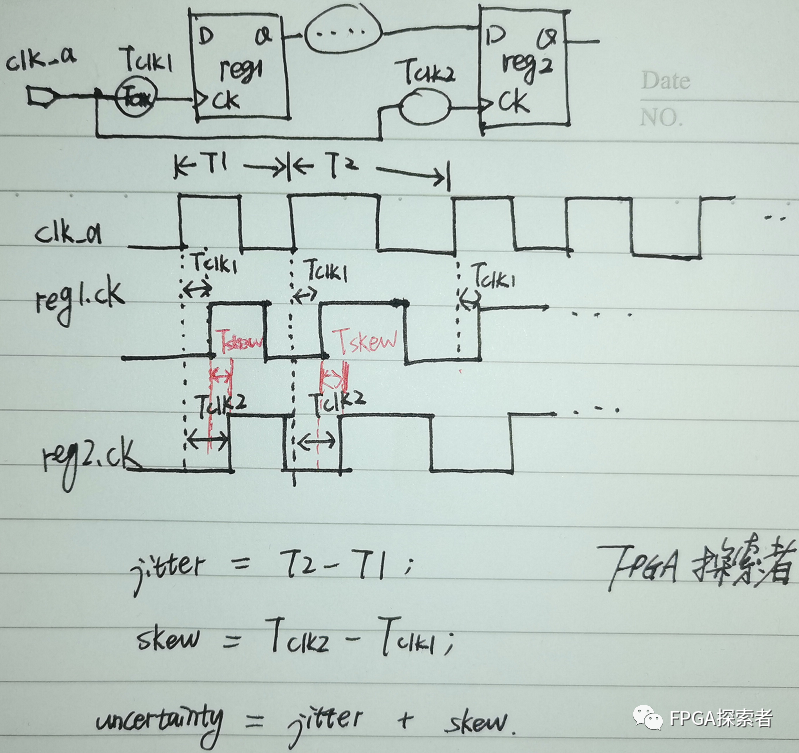 D Q
reg1
CK
D Q
reg2
CK
clk_a
Tclk1
Tclk2
Date
NO.
T1
T2
clk_a
Tclk1
Tclk1
Tclk1
reg1.ck
Tskew
Tskew
Tclk2
Tclk2
reg2.ck
jitter = T2 - T1;
FPGA 探索者
skew = Tclk2 - Tclk1;
uncertainty = jitter + skew.
FPGA探索者